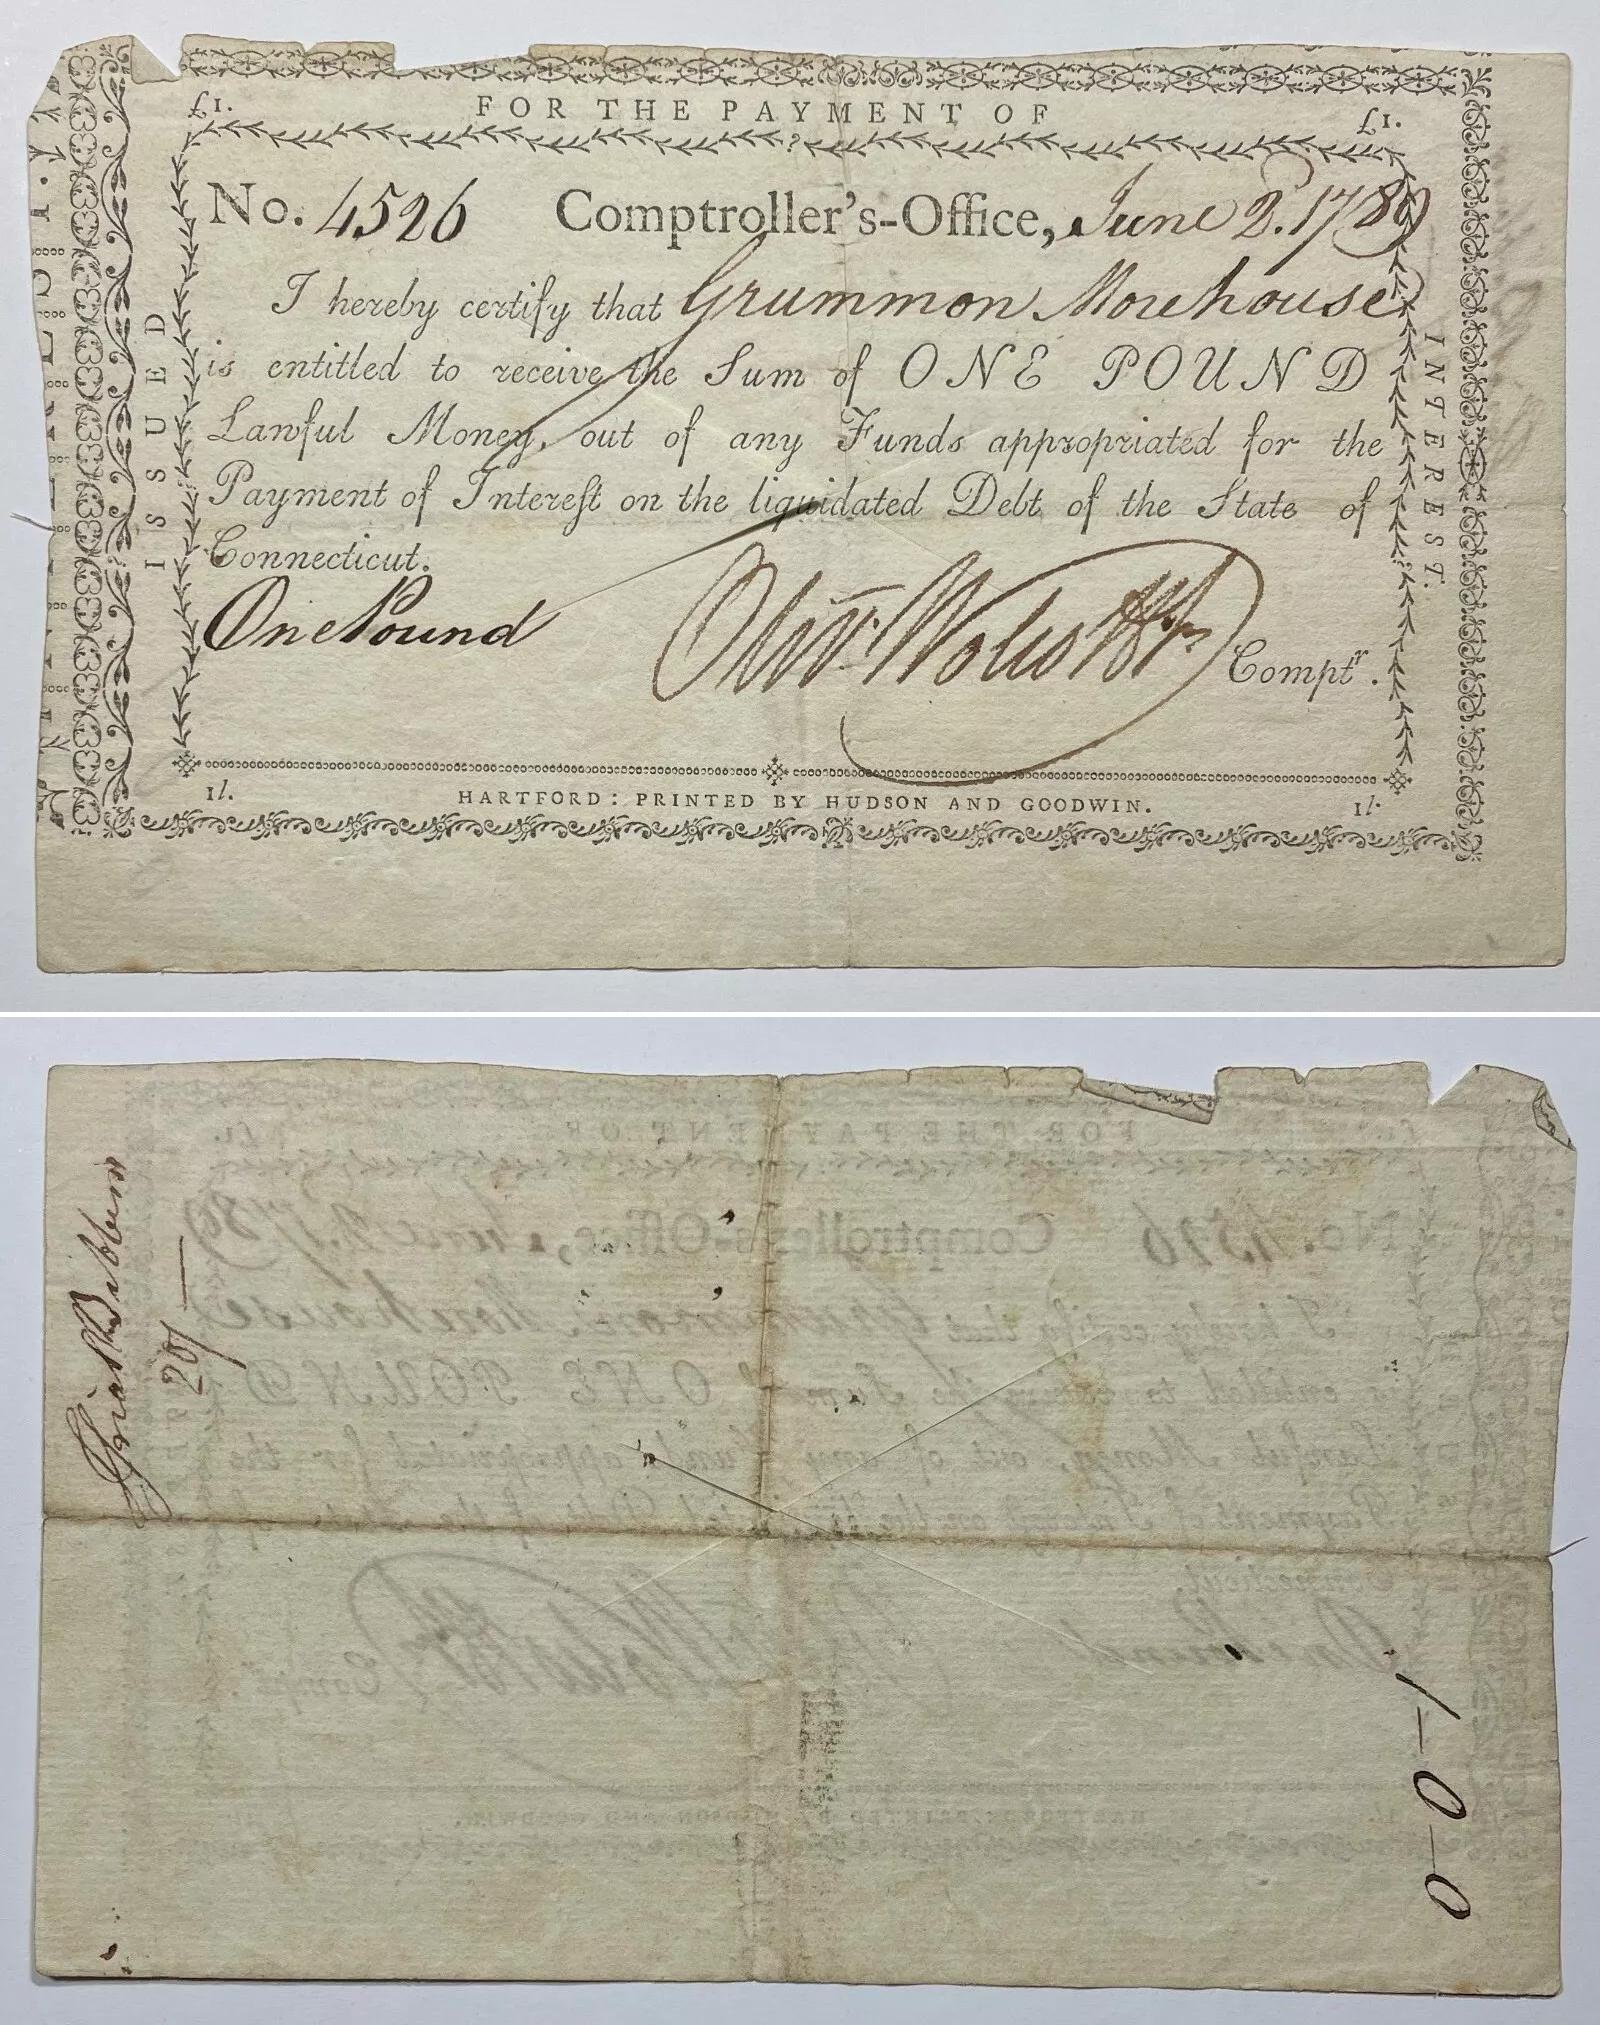 FOR THE PAYMENT OF
£1.
£1.
No. 4526 Comptroller's-Office, June 2. 1789
I hereby certify that Grummon Morehouse
is entitled to receive the Sum of ONE POUND
Lawful Money, out of any Funds appropriated for the
Payment of Interest on the liquidated Debt of the State of
Connecticut.
One Pound
Olivr. Wolcott Jr. Comptr.
1l.
HARTFORD: PRINTED BY HUDSON AND GOODWIN.
1l.
ISSUED
INTEREST.
20/—
1—0—0